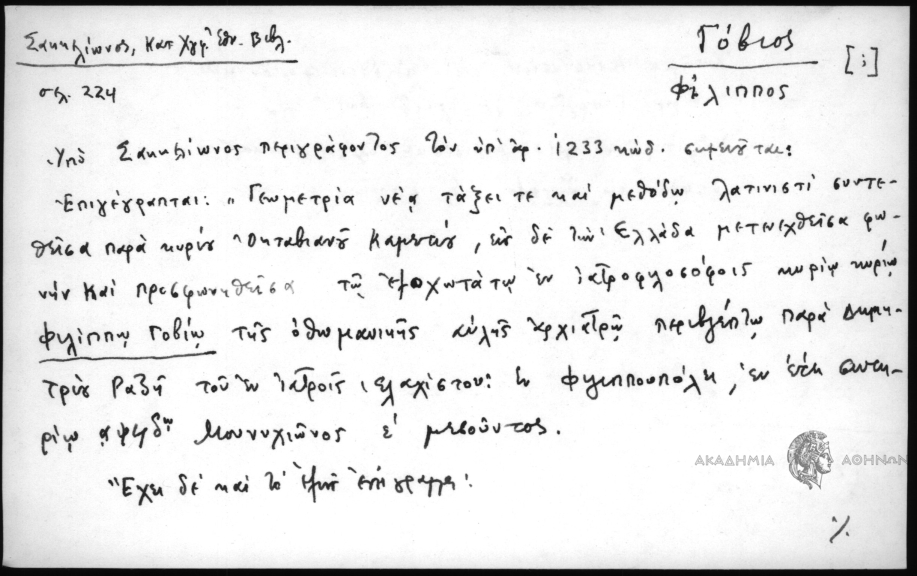 Σακκελίωνος, Κατ. Χγφ. Ἐθν. Βιβλ.
Γόβιος
Φίλιππος
[i]
σελ. 224
Ὑπὸ Σακκελίωνος περιγράφοντος τὸν ὑπ' ἀρ. 1233 κώδ. σημειοῦται:
Ἐπιγέγραπται: „Γεωμετρία νέᾳ τάξει τε καὶ μεθόδῳ λατινιστὶ συντε-
θεῖσα παρὰ κυρίου Ὀκταβιανοῦ Καμετίου, εἰς δὲ τὴν Ἑλλάδα μετενεχθεῖσα φω-
νὴν καὶ προσφωνηθεῖσα τῷ ἐξοχωτάτῳ ἐν ἰατροφιλοσόφοις κυρίῳ κυρίῳ
Φιλίππῳ Γοβίῳ τῆς ὀθωμανικῆς αὐλῆς ἀρχιατρῷ περιβλέπτῳ παρὰ Δημη-
τρίου Ραζῆ τοῦ ἐν ἰατροῖς ἐλαχίστου: ἐν Φιλιππουπόλει, ἐν ἔτει σωτη-
ρίῳ Μουνυχιῶνος ε' μεσοῦντος.
Ἔχει δὲ καὶ τὸ ἑξῆς ἐπίγραμμα:
ΑΚΑΔΗΜΙΑ ΑΘΗΝΩΝ
%